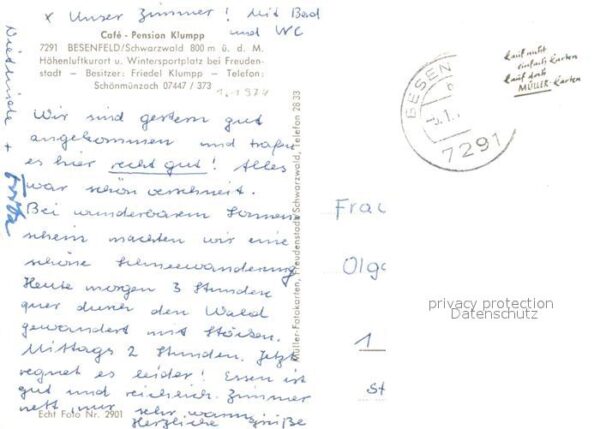 x Unser Zimmer! Mit Bad
und WC
Café - Pension Klumpp
7291 BESENFELD/Schwarzwald 800 m ü. d. M.
Höhenluftkurort u. Wintersportplatz bei Freuden-
stadt — Besitzer: Friedel Klumpp — Telefon:
Schönmünzach 07447 / 373
Wir sind gestern gut
angekommen und trafen
es hier recht gut! Alles
war schön verschneit.
Bei wunderbarem Sonnen
schein machten wir eine
schöne Schneewanderung
Heute morgen 3 Stunden
quer durch den Wald
gewandert mit Stöcken.
Mittags 2 Stunden. Jetzt
regnet es leider! Essen ist
gut und reichlich. Zimmer
nett, nur sehr warm
Herzliche Grüße
Dietlinde +
Echt Foto Nr. 2901
Müller-Fotokarten, Freudenstadt/Schwarzwald, Telefon 28 33
kauf nicht
einfach Karten
kauf doch
MÜLLER-Karten
BESEN
7291
Frau
Olga
privacy protection
Datenschutz
1
St